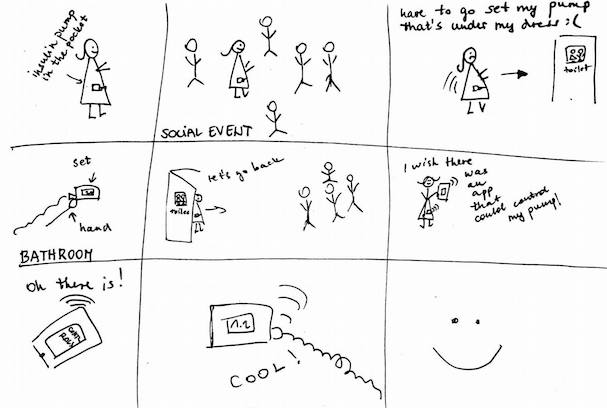 insulin pump
in the pocket
SOCIAL EVENT
have to go set my pump
that's under my dress :(
toilet
set
hand
BATHROOM
let's go back
toilet
I wish there
was
an
app
that
could control
my pump!
oh there is!
CONTROL
1.2
COOL!